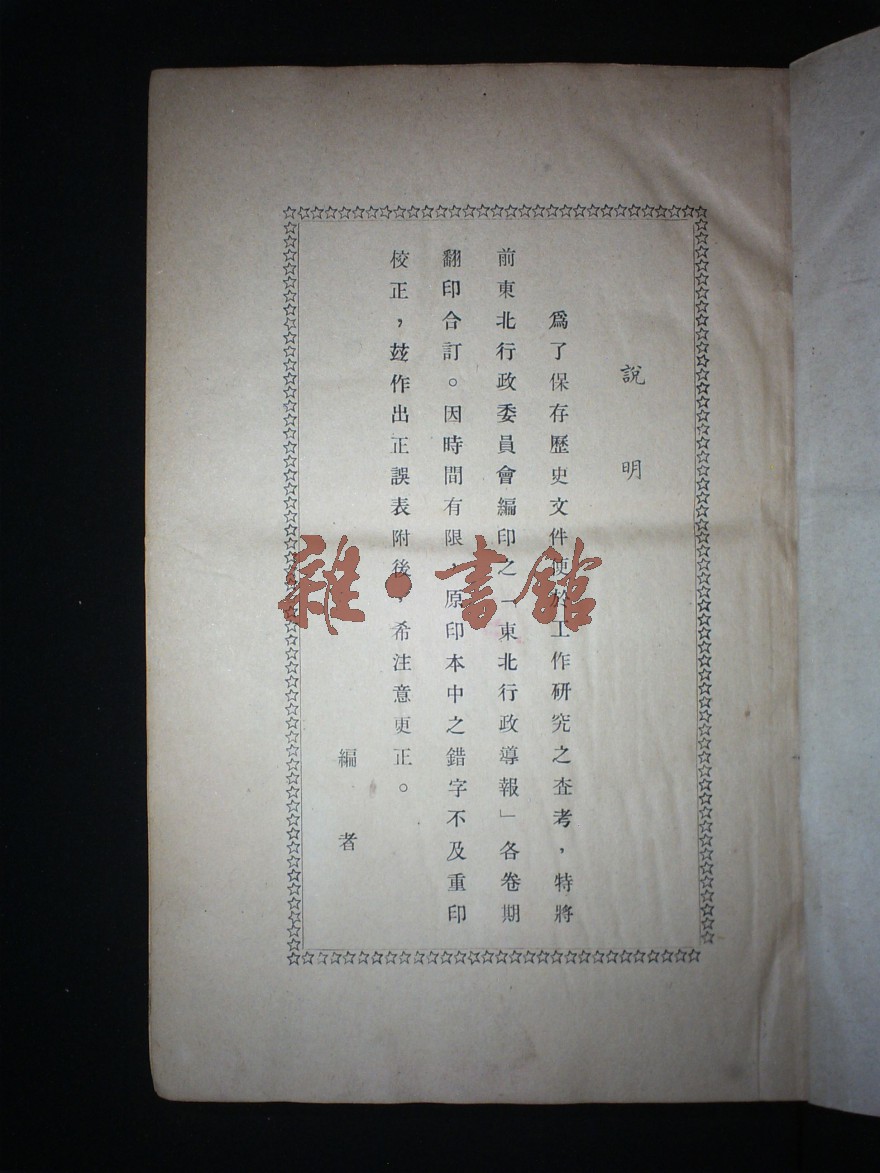 說明
爲了保存歷史文件便於工作研究之查考，特將
前東北行政委員會編印之「東北行政導報」各卷期
翻印合訂。因時間有限，原印本中之錯字不及重印
校正，玆作出正誤表附後，希注意更正。
編者
雜·書館